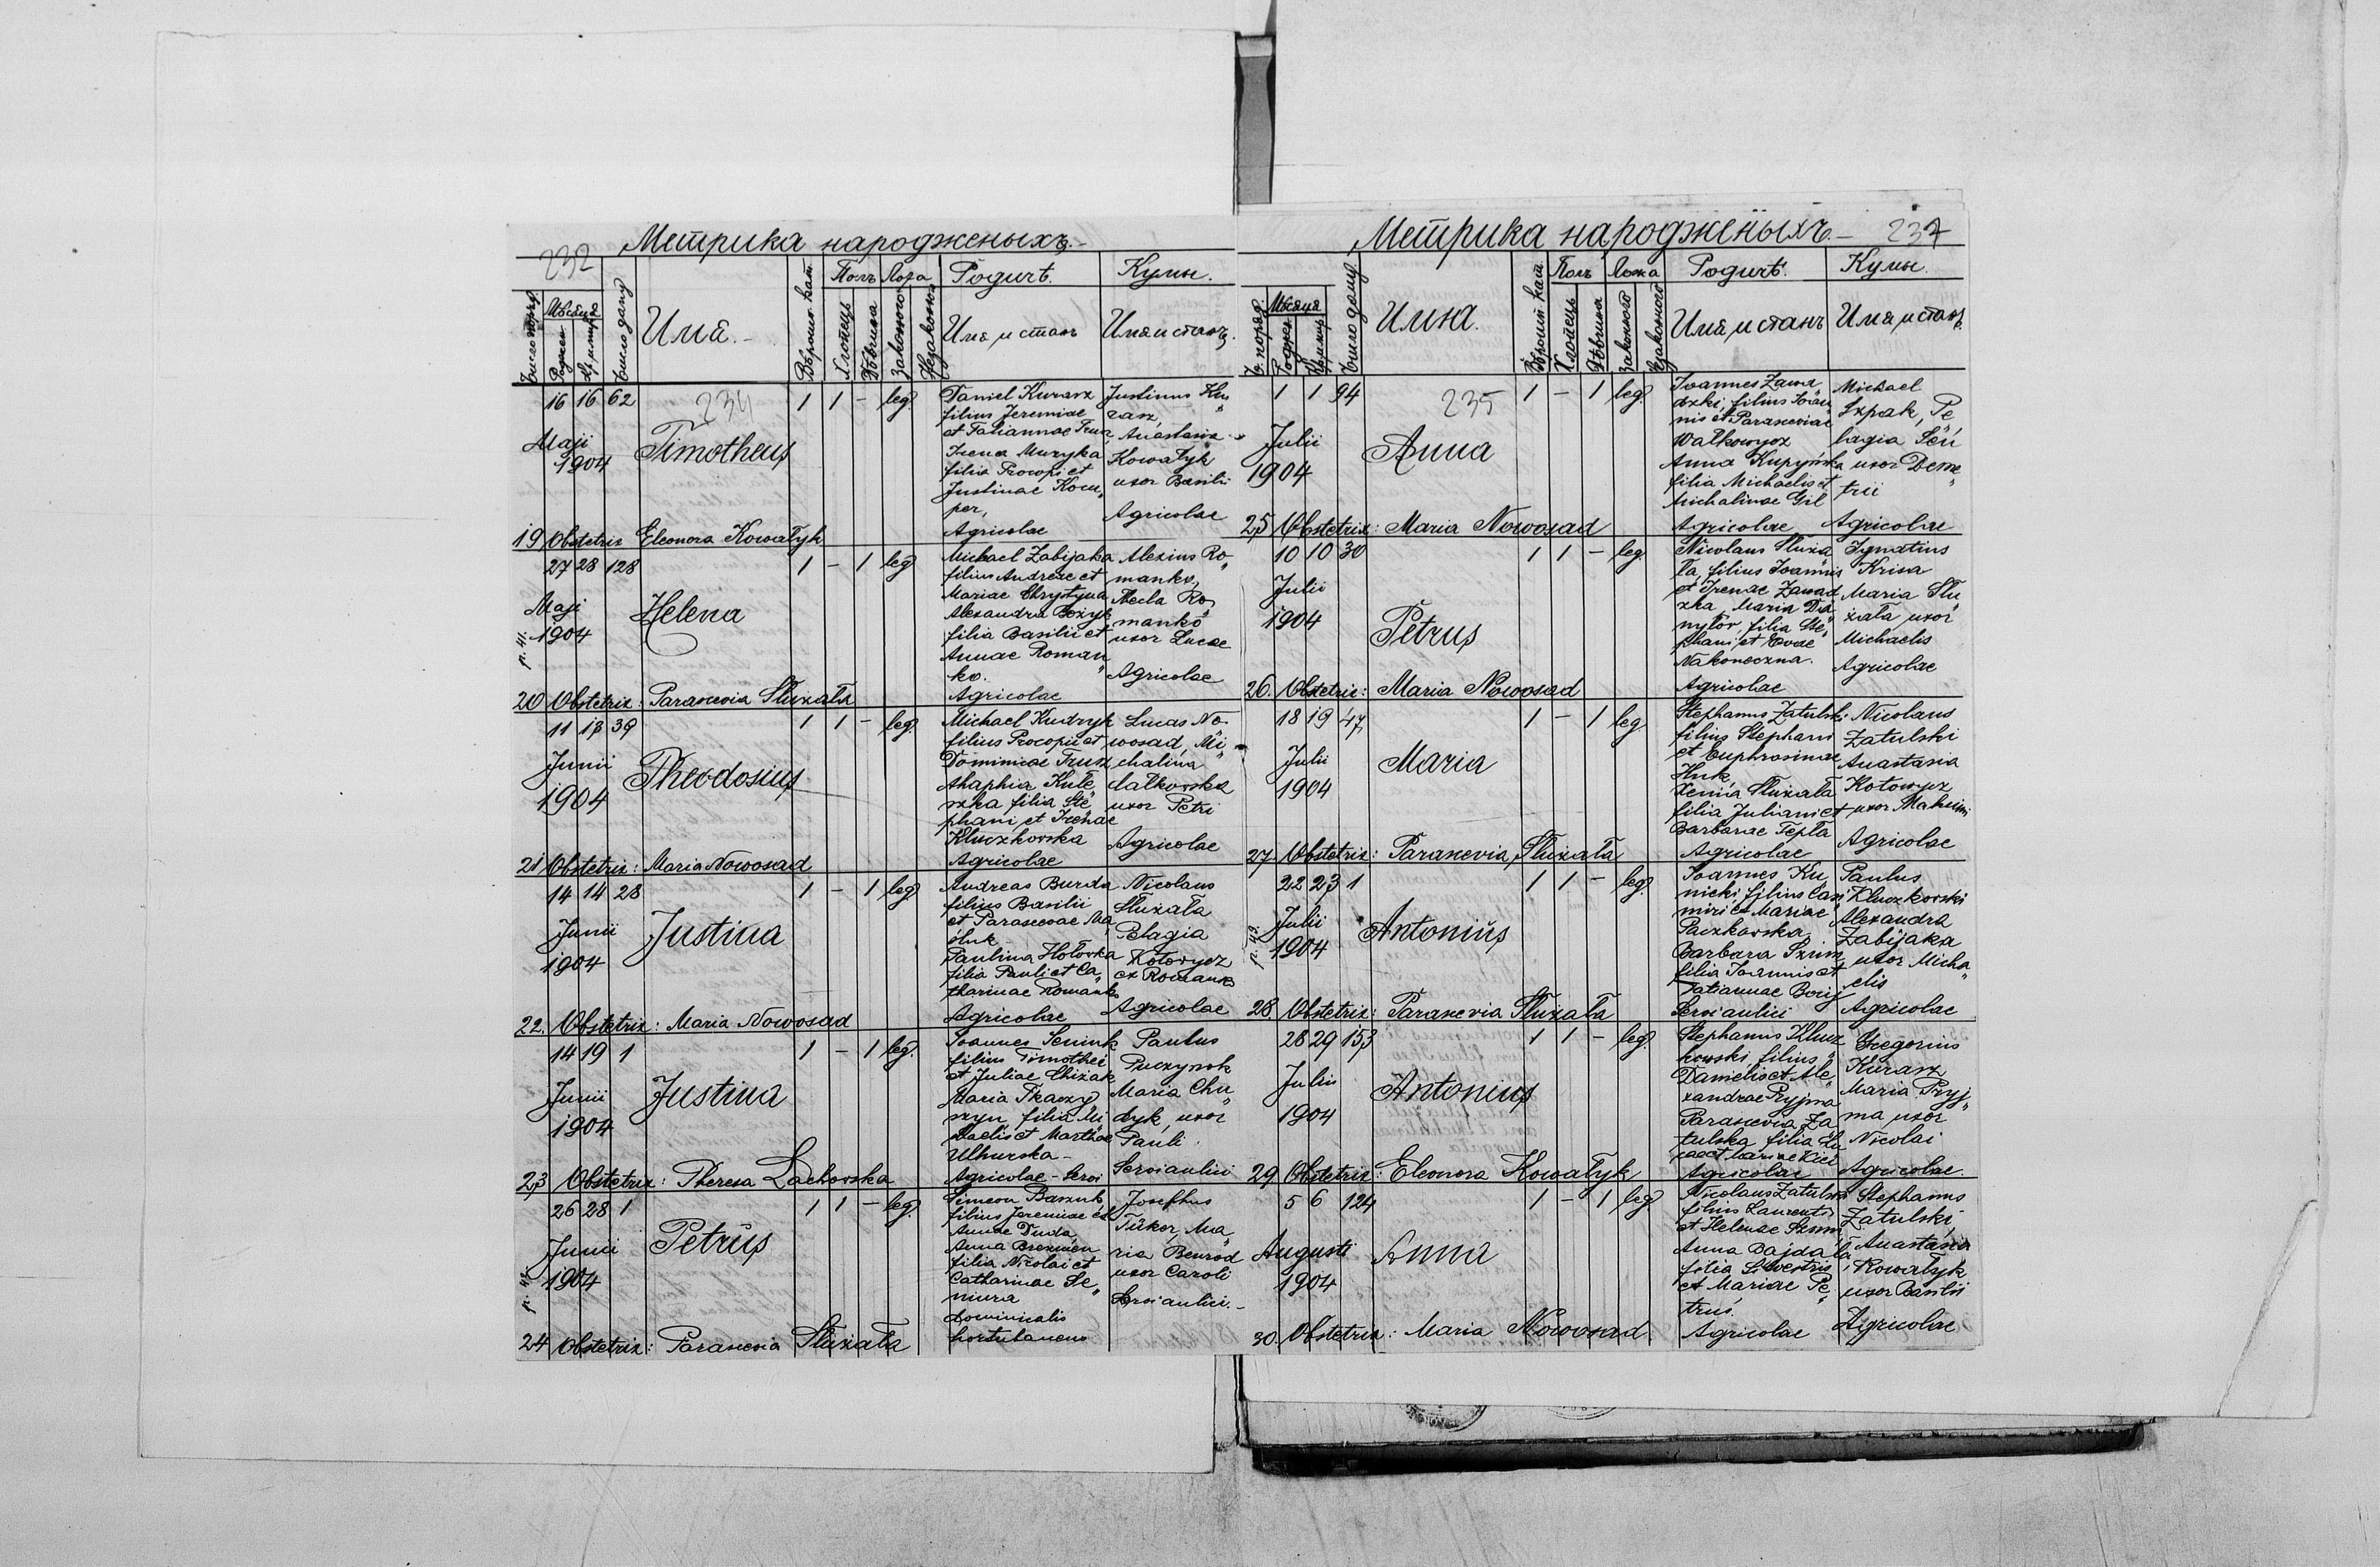 Метрика народженыхъ.
232
Число поряд. Мѣсяця Роджен. Кр. и мѵро Число дому Имя. Вѣроисп. кат. Полъ Хлопець Дѣвчина Ложа законного Незаконного Родичѣ. Имя и станъ Кумы. Имя и станъ.
16 16 62
234
1 1 - leg.
Maji
1904
Timotheus
Daniel Kurasz
filius Jeremiae
et Tatiannae
Irena Muzyka
filia Procopi et
Justinae Kocu„
per,
Agricolae
Justinus Ku„
rasz,
Anastasia
Kowałyk
uxor Basilii
Agricolae
19 Obstetrix Eleonora Kowałyk
27 28 128
1 - 1 leg
Maji
1904
Helena
Michael Zabijaka
filius Andreae et
Mariae Chrystyna
Alexandra Bożyk
filia Basilii et
Annae Roman„
ko.
Agricolae
Alexius Ro„
manko,
Thecla Ro„
manko
uxor Lucae
Agricolae
p. 41.
20 Obstetrix: Parascevia Służała
11 13 39
1 1 - leg.
Junii
1904
Theodosius
Michael Kudryk
filius Procopii et
Dominicae Trusz
Ahaphia Kule„
szka filia Ste„
phani et Irenae
Kluczkowska
Agricolae
Lucas No„
wosad, Mi„
chalina
Całkowska
uxor Petri
Agricolae
21 Obstetrix: Maria Nowosad
14 14 28
1 - 1 leg.
Junii
1904
Justina
Andreas Burda
filius Basilii
et Parascevae
Paulina Hołowka
filia Pauli et Ca„
tharinae Romanko
Agricolae
Nicolaus
Służała
Pelagia
Kotowycz
ex Romanko
Agricolae
22. Obstetrix: Maria Nowosad
14 19 1
1 - 1 leg.
Junii
1904
Justina
Joannes Seniuk
filius Timothei
et Juliae Chiżak
Maria Tkaczy„
szyn, filia Mi„
chaelis et Marthae
Uhurska -
Agricolae - Servi
Paulus
Puczynok
Maria Chu„
dyk, uxor
Pauli.
Serviaulici
23 Obstetrix: Theresa Lachowska
26 28 1
1 1 - leg.
Junii
1904
Petrus
Simeon Baszuk
filius Jeremiae et
Annae Duda
Anna
filia Nicolai et
Catharinae Se„
niura
dominicalis
hortulaneus
Josephus
Tüker, Ma„
ria Benrod
uxor Caroli
Serviaulici. -
24 Obstetrix: Parascevia Służała
Метрика народженыхъ. - 237
Ч. поряд. Мѣсяця Роджен. Кр. и мѵр. Число дому Имя. Вѣроисп. кат. Полъ Хлопець Дѣвчина Ложа законного Незаконного Родичѣ. Имя и станъ Кумы. Имя и станъ.
1 1 94
235
1 - 1 leg.
Julii
1904
Anna
Joannes Zawa„
dzki, filius Joan„
nis et Parasceviae
Walkowycz
Anna Kupyńska
filia Michaelis et
Michalinae Gil
Agricolae
Michael
Szpak, Pe„
lagia Seń
uxor Deme„
trii
Agricolae
25 Obstetrix: Maria Nowosad
10 10 30
1 1 - leg.
Julii
1904
Petrus
Nicolaus Służa„
ła, filius Joannis
et Irenae Zawad„
zka, Maria Da„
nyłów, filia Ste„
phani et Evae
Nakoneczna.
Agricolae
Ignatius
Krisa
Maria Słu„
żała uxor
Michaelis
Agricolae
26. Obstetrix: Maria Nowosad
18 19 47
1 - 1 leg
Julii
1904
Maria
Stephanus Zatulski
filius Stephani
et Euphrosinae
Huk,
Xenia Służała
filia Juliani et
Barbarae Tepła
Agricolae
Nicolaus
Zatulski
Anastasia
Kotowycz
uxor Maksimi
Agricolae
27. Obstetrix: Parascevia, Służała
22 23 1
1 1 - leg.
Julii
1904
Antonius
Joannes Ku„
nicki, filius Casi„
miri et Mariae
Paczkowska
Barbara Szum
filia Joannis et
Tatiannae Borij
Serviaulici
Paulus
Kluczkowski
Alexandra
Zabijaka
uxor Micha„
elis
Agricolae
28. Obstetrix: Parascevia Służała
28 29 153
1 1 - leg.
Julii
1904
Antonius
Stephanus Klucz„
kowski, filius
Danielis et Ale„
xandrae Pryjma
Parascevia Za„
tulska filia
Agricolae
Gregorius
Kurasz
Maria Pryj„
ma, uxor
Nicolai
Agricolae.
29 Obstetrix: Eleonora Kowałyk
5 6 124
1 - 1 leg
Augusti
1904
Anna
Nicolaus Zatulski
filius Laurentii
et Helenae Szum
Anna Bajdała
filia Silvestris
et Mariae Pe„
truś.
Agricolae
Stephanus
Zatulski,
Anastasia
Kowałyk
uxor Basilii
Agricolae
30. Obstetrix: Maria Nowosad